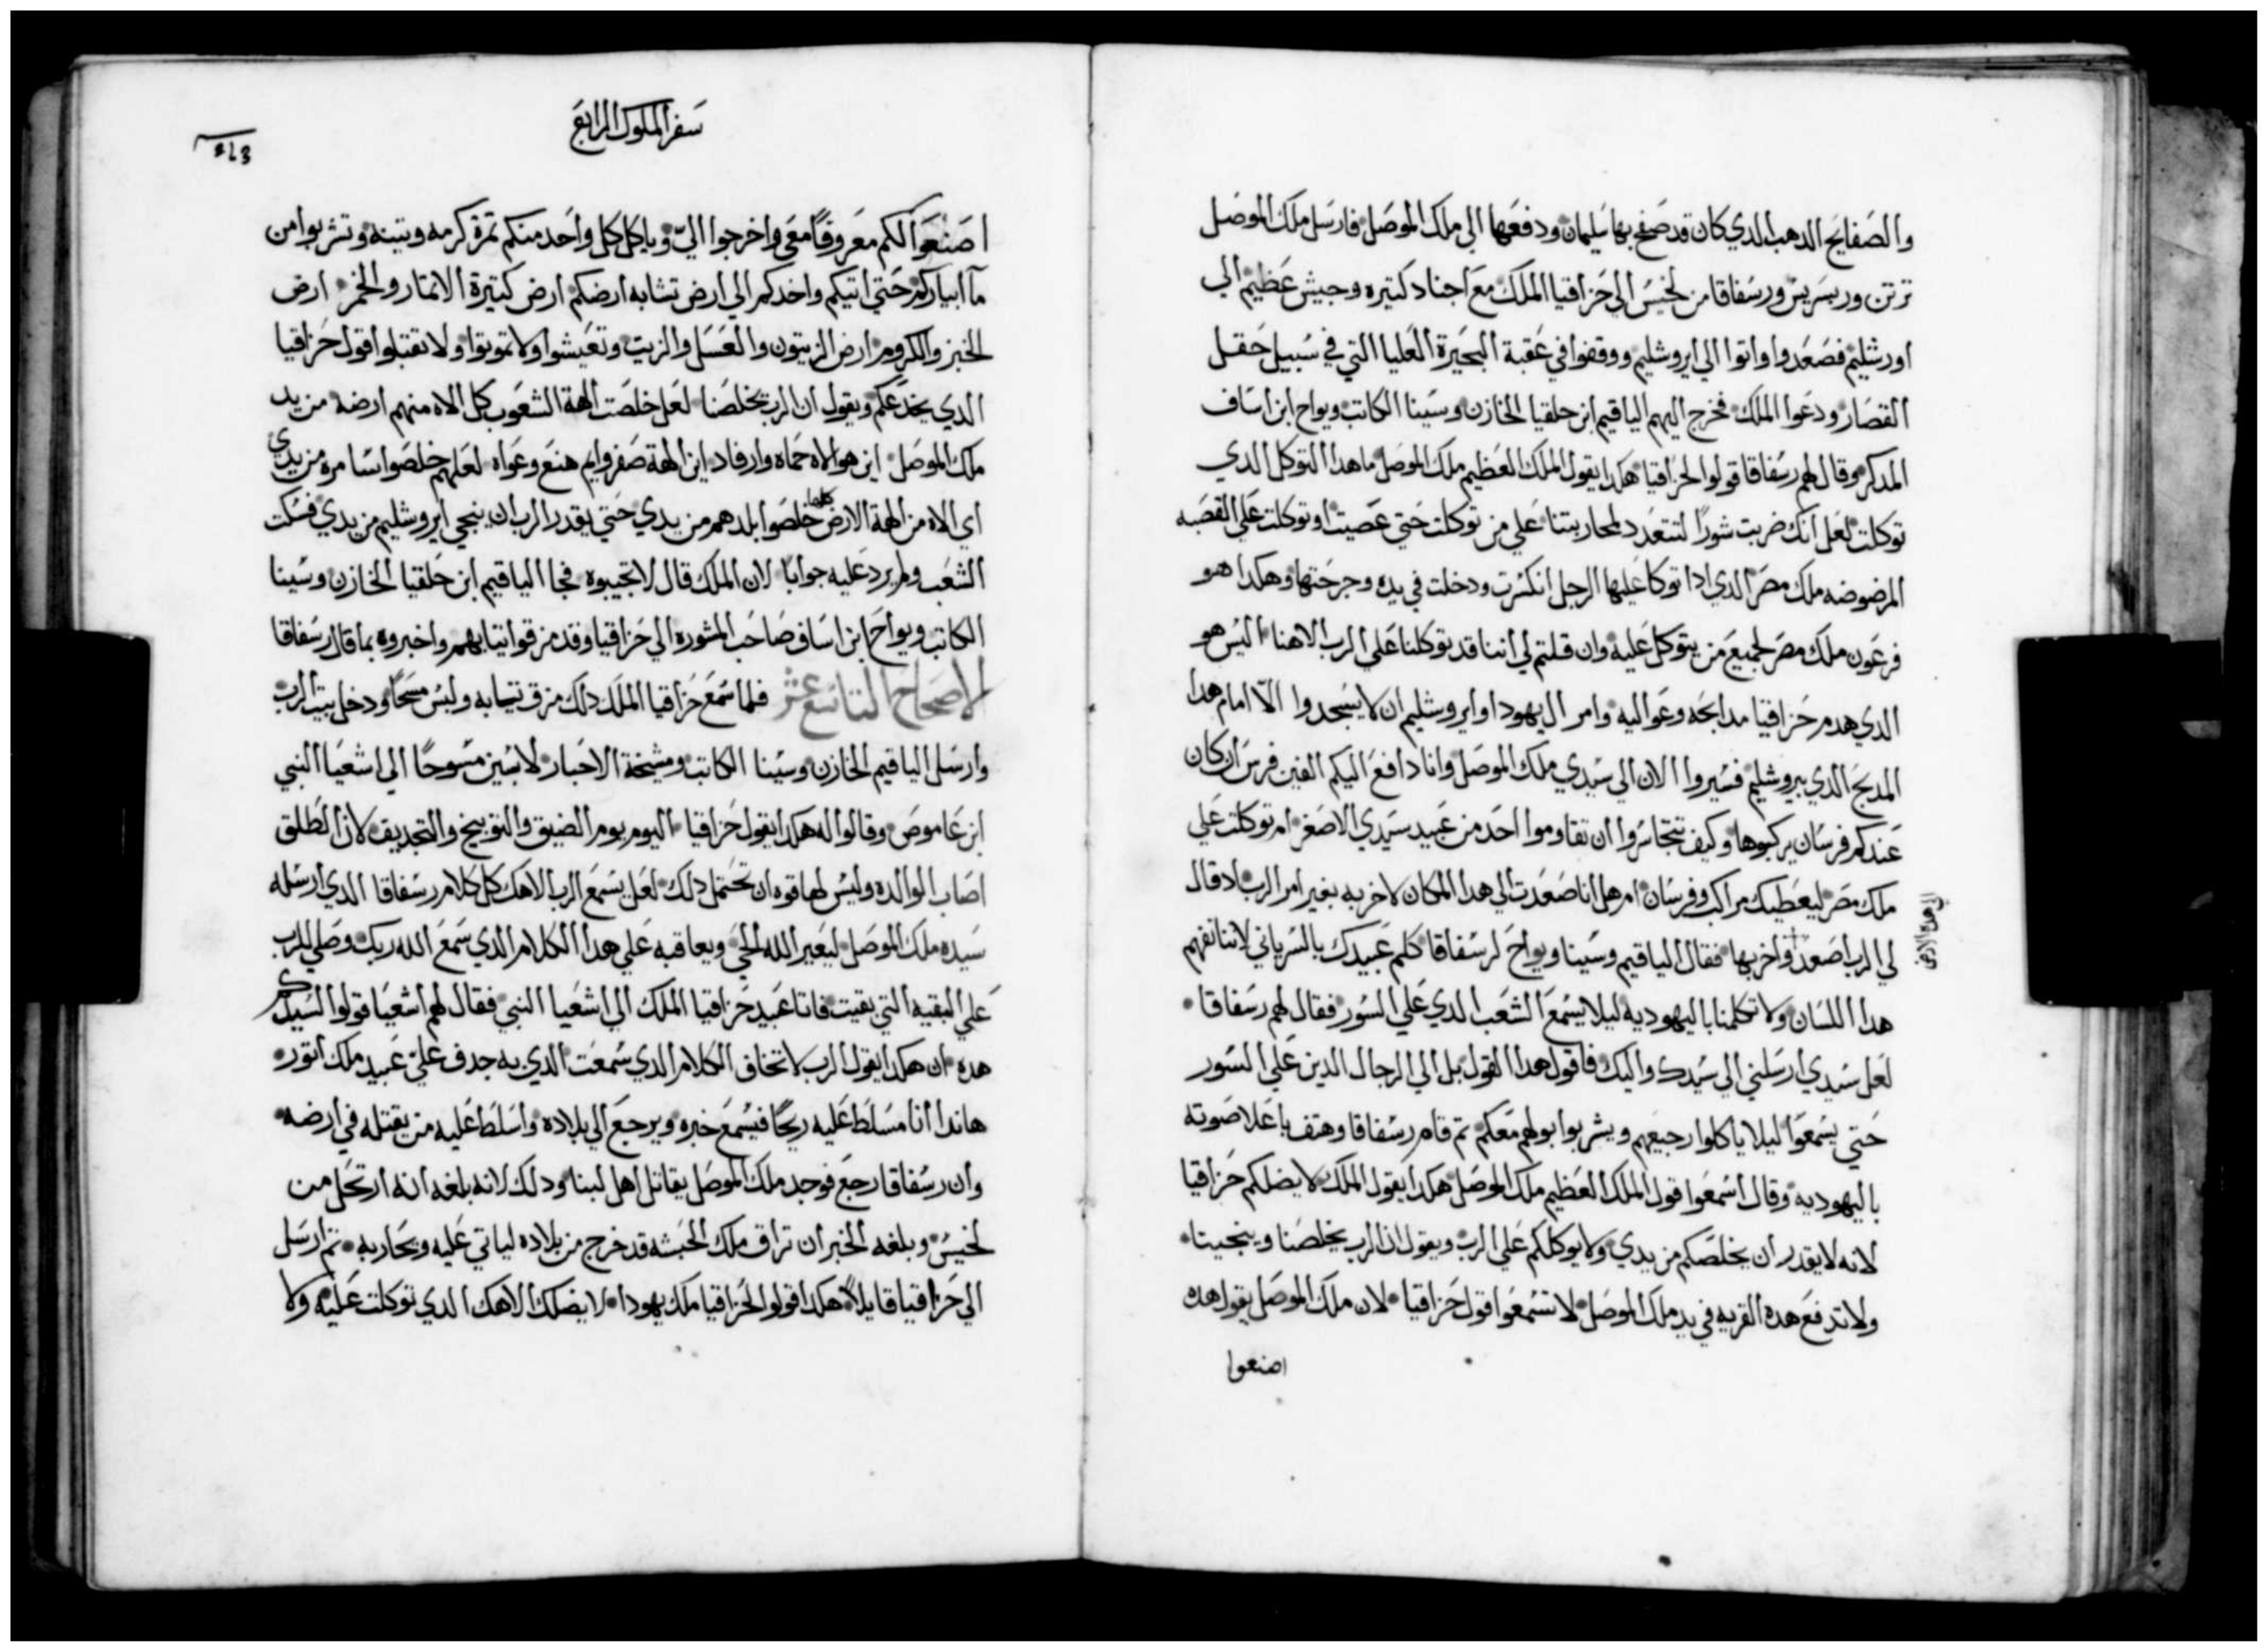 والصفايح الدهب الدي كان قد صفح بها سليمان ودفعها الي ملك الموصل فارسل ملك الموصل
ترتن وريسريس ورسفاقا من لخيس الي حزاقيا الملك مع اجناد كتيره وجيش عظيم الي
اورشليم فصعدوا واتوا الي ايروشليم ووقفوا في عقبة البحيرة العليا التي في سبيل حقل
القصار ودعوا الملك فخرج اليهم الياقيم ابن حلقيا الخازن وسينا الكاتب ويواح ابن اساف
المدكر وقال لهم رسفاقا قولوا لحزاقيا هكدا يقول الملك العظيم ملك الموصل ما هدا التوكل الدي
توكلت لعل انك ضربت شورًا لتتعدد لمحاربتنا علي من توكلت حتي عصيت او توكلت علي القصبه
المرضوضه ملك مصر الدي ادا توكا عليها الرجل انكسرت ودخلت في يده وجرحتها وهكدا هو
فرعون ملك مصر لجميع من يتوكل عليه وان قلتم لي اننا قد توكلنا علي الرب الاهنا اليس هو
الدي هدم حزاقيا مدابحه وعواليه وامر ال يهودا وايروشليم ان لا يسجدوا الّا امام هدا
المدبح الدي بيروشليم فسيروا الان الي سيدي ملك الموصل وانا دافع اليكم الفين فرس ان كان
عندكم فرسان يركبوها وكيف تتجاسروا ان تقاوموا احد من عبيد سيدي الاصغر ام توكلت علي
ملك مصر ليعطيك مراكب وفرسان ام هل انا صعدت الي هدا المكان لاخربه بغير امر الرب اد قال
لي الرب اصعد واخربها فقال الياقيم وسينا ويواح لرسفاقا كلم عبيدك بالسرياني لاننا نفهم
الي هده الارض
هدا اللسان ولا تكلمنا باليهوديه ليلا يسمع الشعب الدي علي السور فقال لهم رسفاقا
لعل سيدي ارسلني الي سيدك واليك فاقول هدا القول بل الي الرجال الدين علي السور
حتي يسمعوا ليلا ياكلوا رجيعهم ويشربوا بولهم معكم تم قام رسفاقا وهتف باعلا صوته
باليهوديه وقال اسمعوا قول الملك العظيم ملك الموصل هكدا يقول الملك لا يضلكم حزاقيا
لانه لا يقدر ان يخلصكم من يدي ولا يوكلكم علي الرب ويقول ان الرب يخلصنا وينجينا
ولا تدفع هده القريه في يد ملك الموصل لا تسمعوا قول حزاقيا لان ملك الموصل يقول هده
اصنعوا
سفر الملوك الرابع
اصنعوا لكم معروفًا معي واخرجوا اليّ وياكل كل واحد منكم تمرة كرمه وتينه وتشربوا من
مآ ابياركم حتي اتيكم واخدكم الي ارض تشابه ارضكم ارض كتيرة الاتمار والخمر ارض
الخبز والكروم ارض الزيتون والعسل والزيت وتعيشوا ولا تموتوا ولا تقبلوا قول حزاقيا
الدي يخدعكم ويقول ان الرب يخلصنا لعل خلصت الهة الشعوب كل الاه منهم ارضه من يد
ملك الموصل اين هو الاه حماه وارفاد اين الهة صفروايم هنع وعواه لعلهم خلصوا سامره من يدي
اي الاه من الهة الارض كلها خلصوا بلدهم من يدي حتي يقدر الرب ان ينجي ايروشليم من يدي فسكت
الشعب ولم يرد عليه جوابًا لان الملك قال لا تجيبوه فجا الياقيم ابن حلقيا الخازن وسينا
الكاتب ويواح ابن اساف صاحب المشوره الي حزاقيا وقد مزقوا تيابهم واخبروه بما قال رسفاقا
الاصحاح التاسع عشر فلما سمع حزاقيا الملك دلك مزق تيابه ولبس مسحًا ودخل بيت الرب
وارسل الياقيم الخازن وسينا الكاتب ومشيخة الاحبار لابسين مسوحًا الي اشعيا النبي
ابن عاموص وقالوا له هكدا يقول حزاقيا اليوم يوم الضيق والتوبيخ والتجديف لان الطلق
اصاب الوالده وليس لها قوه ان تحتمل دلك لعل يسمع الرب الاهك كل كلام رسفاقا الدي ارسله
سيده ملك الموصل ليعير الله الحي ويعاقبه علي هدا الكلام الدي سمع الله ربك وصلي للرب
علي البقيه التي بقيت فاتا عبيد حزاقيا الملك الي اشعيا النبي فقال لهم اشعيا قولوا لسيدكم
هده ان هكدا يقول الرب لا تخاف الكلام الدي سمعت الدي به جدف عليّ عبيد ملك اتور
هاندا انا مسلط عليه ريحًا فيسمع خبره ويرجع الي بلاده واسلط عليه من يقتله في ارضه
وان رسفاقا رجع فوجد ملك الموصل يقاتل اهل لبنا ودلك لانه بلغه انه ارتحل من
لخيس وبلغه الخبر ان تراق ملك الحبشه قد خرج من بلاده لياتي عليه ويحاربه تم ارسل
الي حزاقيا قايلاً هكدا قولوا لحزاقيا ملك يهودا لا يضلك الاهك الدي توكلت عليه ولا